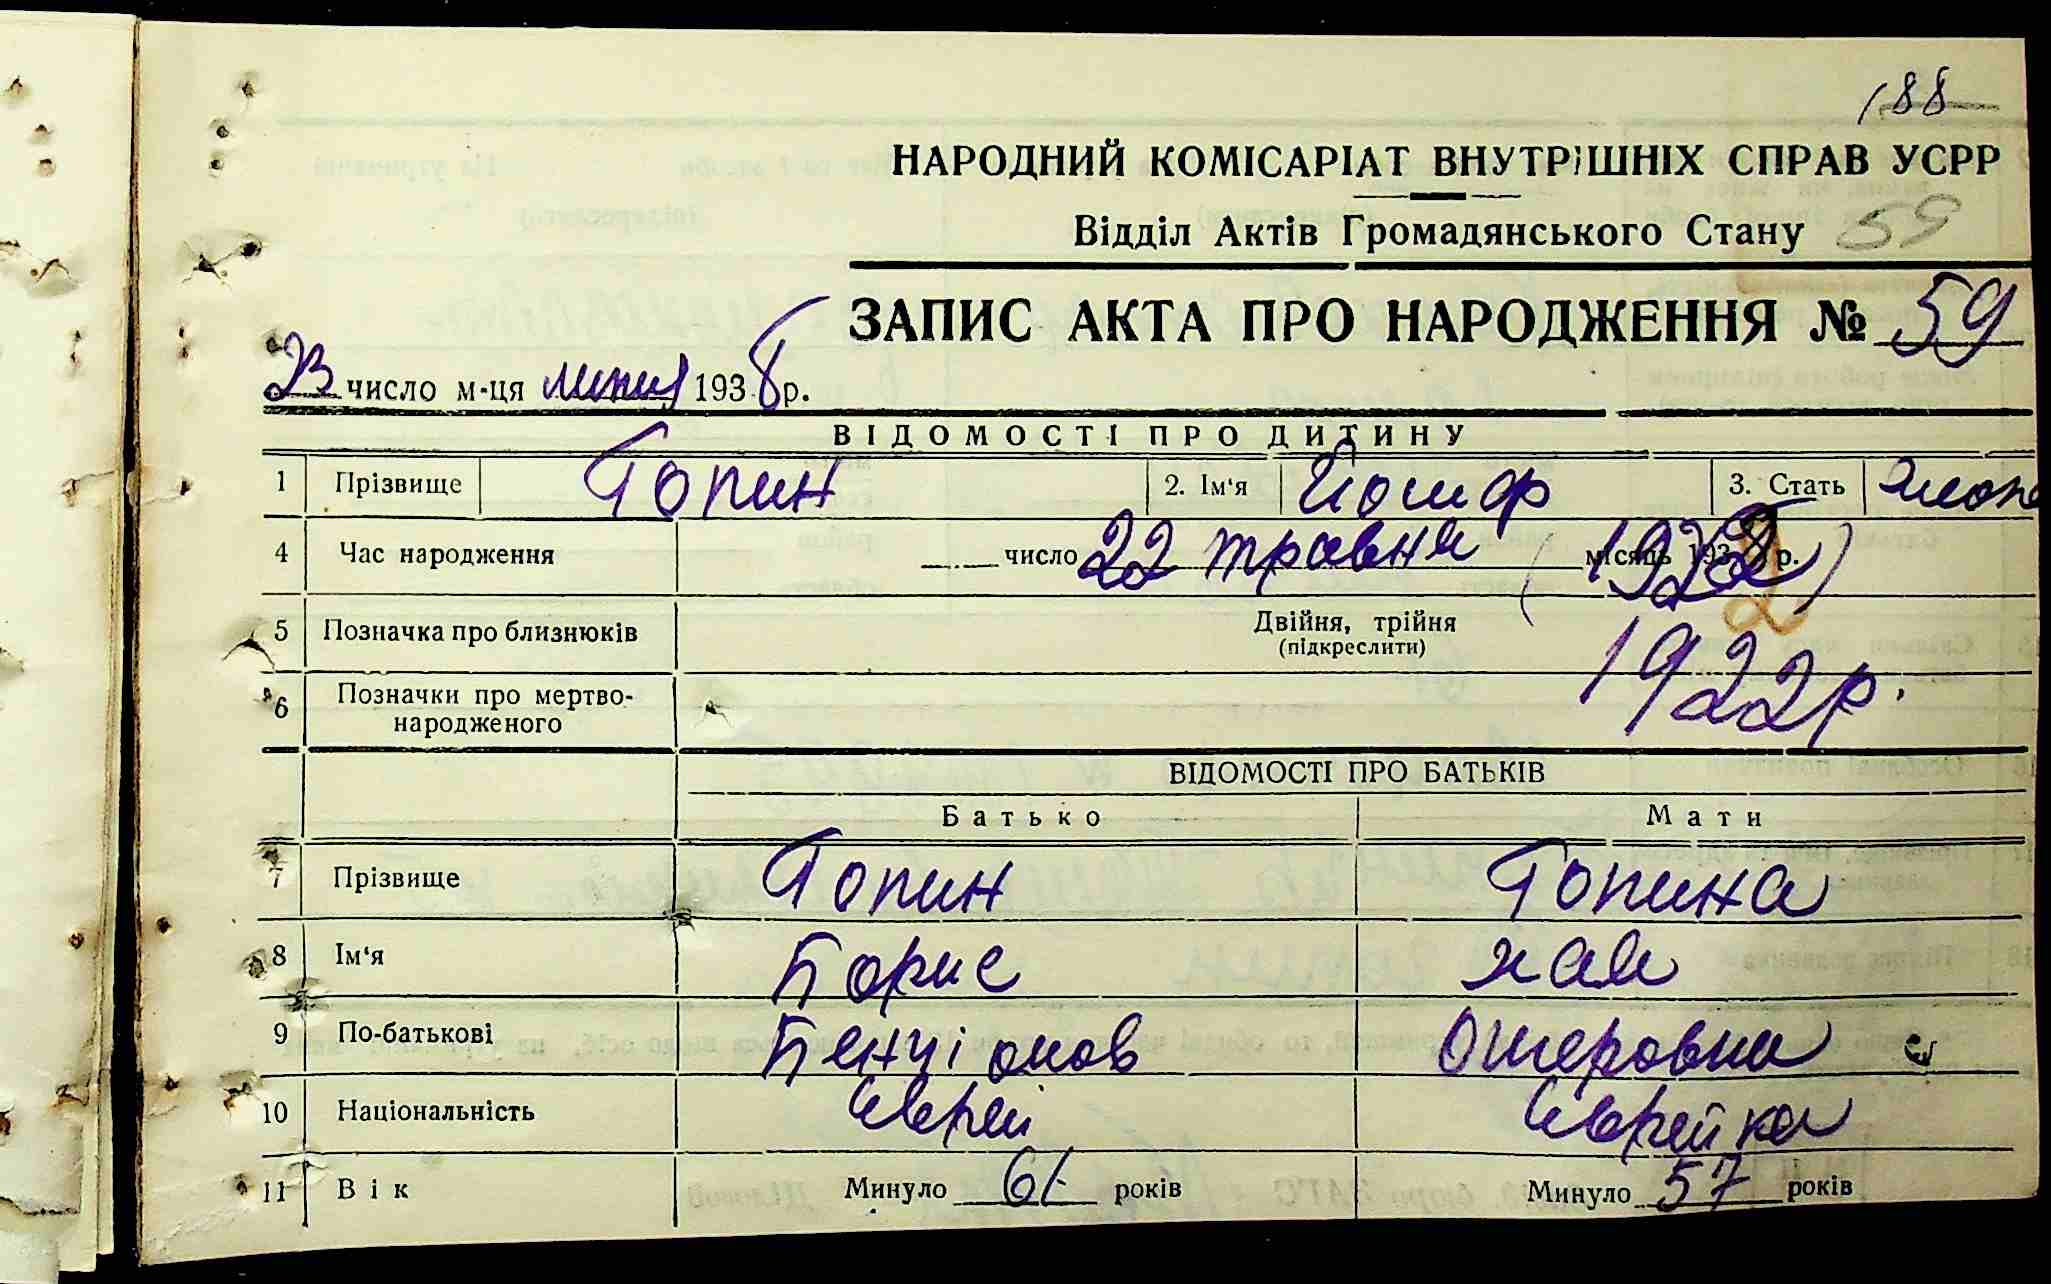 188
НАРОДНИЙ КОМІСАРІАТ ВНУТРІШНІХ СПРАВ УСРР
Відділ Актів Громадянського Стану 59
ЗАПИС АКТА ПРО НАРОДЖЕННЯ № 59
23 число м-ця липня 1938 р.
ВІДОМОСТІ ПРО ДИТИНУ
1 Прізвище Топин 2. Ім'я Йосиф 3. Стать
4 Час народження число 22 травня місяць 193 р.
5 Позначка про близнюків Двійня, трійня
(підкреслити)
1922 р.
6 Позначки про мертво-
народженого
ВІДОМОСТІ ПРО БАТЬКІВ
Батько Мати
7 Прізвище Топин Топина
8 Ім'я Борис Хая
9 По-батькові Бенціонов Ошеровна
10 Національність Єврей Єврейка
11 Вік Минуло 61 років Минуло 57 років